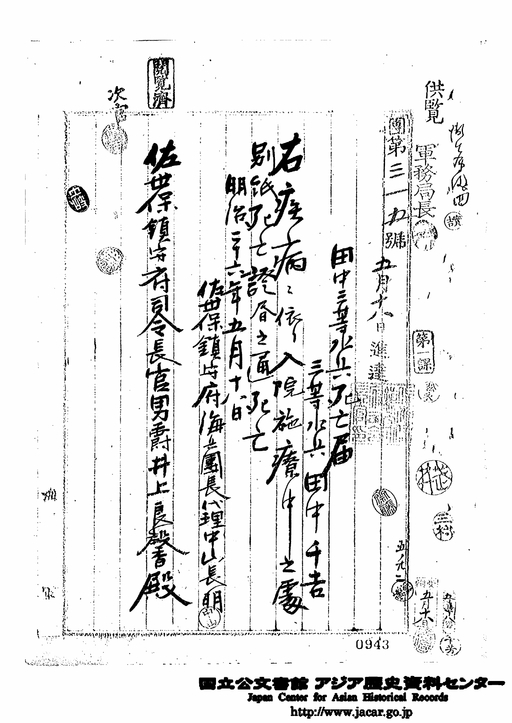 供覧
軍務局長
第一課
團第三一九號
五月十八日進達
田中三等水兵死亡届
三等水兵田中千吉
右疾病ニ依リ入院施療中之處
別紙死亡證書之通死亡
明治三十六年五月十日
佐世保鎮守府海兵團長代理中山長明
佐世保鎮守府司令長官男爵井上良馨殿
閲覧濟
次官
0943
国立公文書館 アジア歴史資料センター
Japan Center for Asian Historical Records
http://www.jacar.go.jp